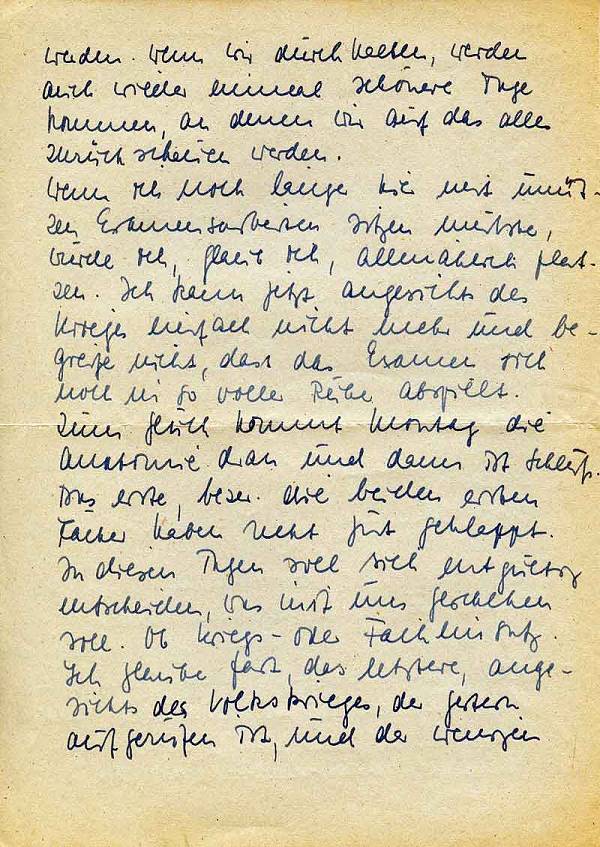 werden. Wenn wir durchhalten, werden
auch wieder einmal schönere Tage
kommen, an denen wir auf das alles
zurück schauen werden.
Wenn ich noch länger hier mit unnüt-
zen Examensarbeiten sitzen müsste,
würde ich, glaub ich, allmählich plat-
zen. Ich kann jetzt angesichts des
Krieges einfach nicht mehr und be-
greife nicht, dass das Examen sich
noch in so voller Ruhe abspielt.
Zum Glück kommt Montag die
Anatomie dran und dann ist Schluß.
Das erste, besser. die beiden ersten
Fächer haben recht gut geklappt.
In diesen Tagen soll sich entgültig
entscheiden, was mit uns geschehen
soll. Ob Kriegs- oder Facheinsatz.
Ich glaube fast, das letztere, ange-
sichts des Volkskrieges, der gestern
aufgerufen ist, und der wenigen